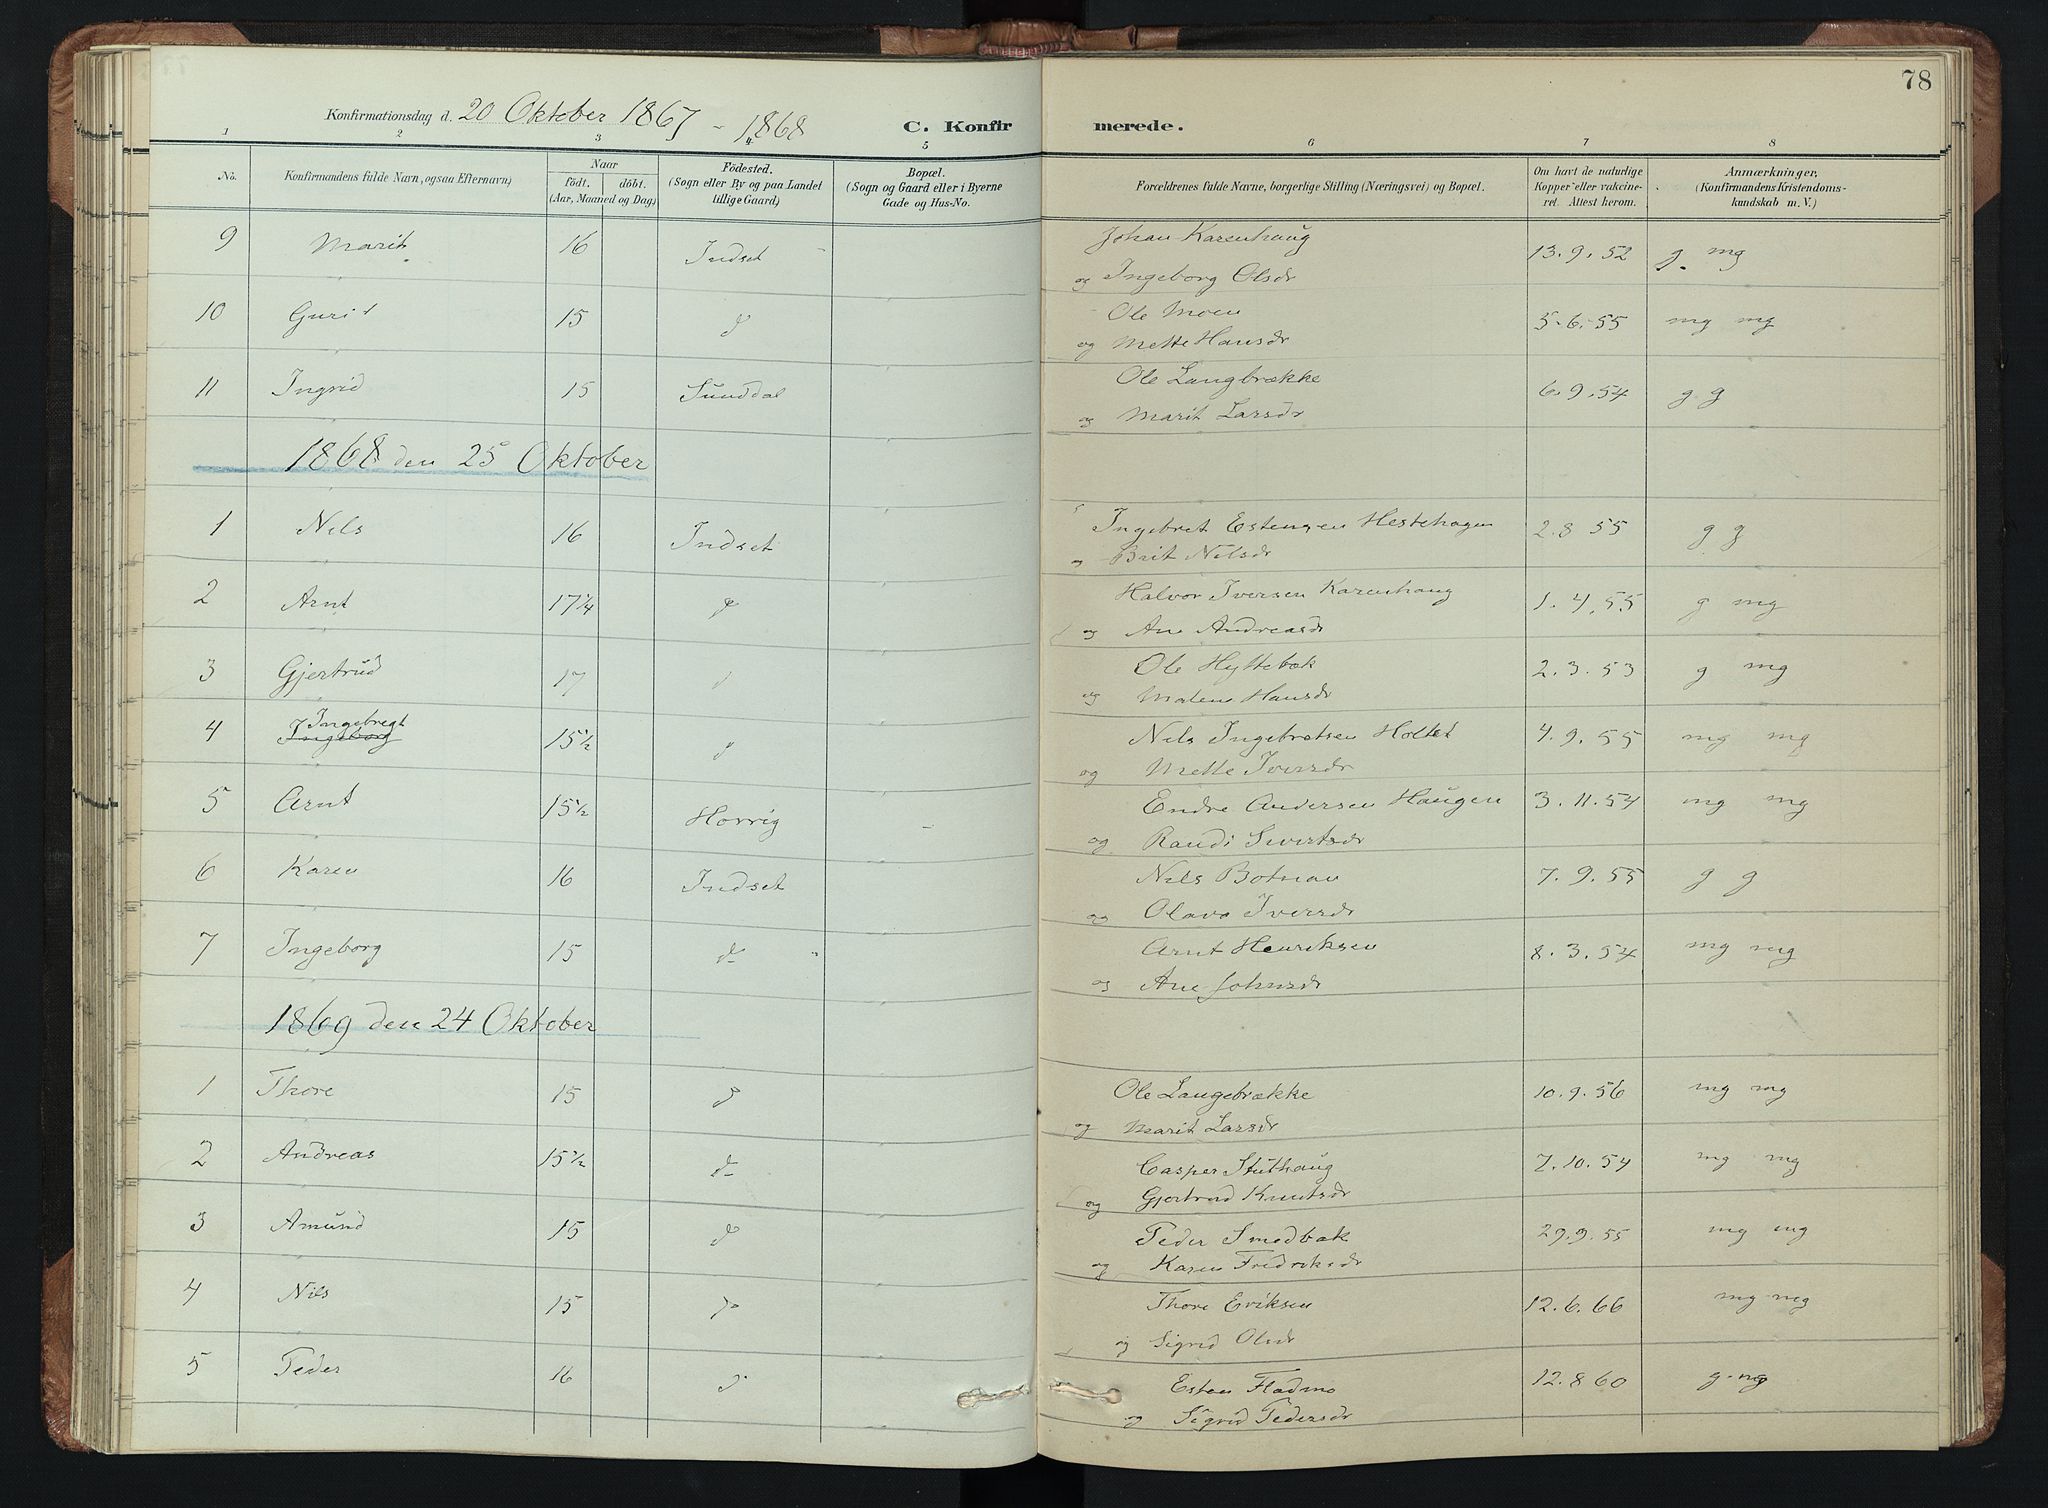 78
Konfirmationsdag d. 20 Oktober 1867 - 1868 C. Konfirmerede.
1 2 3 4 5 6 7 8
No. Konfirmandens fulde Navn, ogsaa Efternavn) Naar födt. döbt. (Aar, Maaned og Dag) Födested. (Sogn eller By og paa Landet tillige Gaard) Bopæl. (Sogn og Gaard eller i Byerne Gade og Hus-No. Forældrenes fulde Navne, borgerlige Stilling (Næringsvei) og Bopæl. Om havt de naturlige Kopper eller vakcineret. Attest herom. Anmærkninger, (Konfirmandens Kristendomskundskab m. V.)
9 Marit 16 Indset Johan Karenhaug 13.9.52 g. mg
og Ingeborg Olsdr
10 Gurit 15 d Ole Moen 5.6.55 mg mg
og Mette Hansdr
11 Ingrid 15 Sunddal Ole Langbrække 6.9.54 g g
og Marit Larsdr
1868 den 25 Oktober
1 Nils 16 Indset Ingebret Estensen Hestehagen 2.8 55 g g
og Brit Nilsdr
2 Arnt 17¼ d Halvor Iversen Karenhaug 1.4.55 g mg
og Ane Andreasdr
3 Gjertrud 17 d Ole Hyttebak 2.3.53 g mg
og Malene Hansdr
4 Ingebregt Ingeborg 15½ d Nils Ingebretsen Holtet 4.9.55 mg mg
og Mette Iversdr
5 Arnt 15½ Horrig Endre Andersen Haugen 3.11.54 mg mg
og Randi Sivertsdr
6 Karen 16 Indset Nils Botnan 7.9.55 g g
og Olava Iversdr
7 Ingeborg 15 d Arnt Henriksen 8.3.54 mg mg
og Ane Johnsdr
1869 den 24 Oktober
1 Thore 15 d Ole Langebrække 10.9.56 mg mg
og Marit Larsdr
2 Andreas 15½ d Casper Stuthaug 7.10.54 mg mg
og Gjertrud Knutsdr
3 Amund 15 d Peder Smedbak 29.9.55 mg mg
og Karen Fredriksdr
4 Nils 15 d Thore Eriksen 12.6.66 mg mg
og Sigrid Olsdr
5 Peder 16 d Esten Fladmo 12.8 60 g mg
og Sigrid Pedersdr